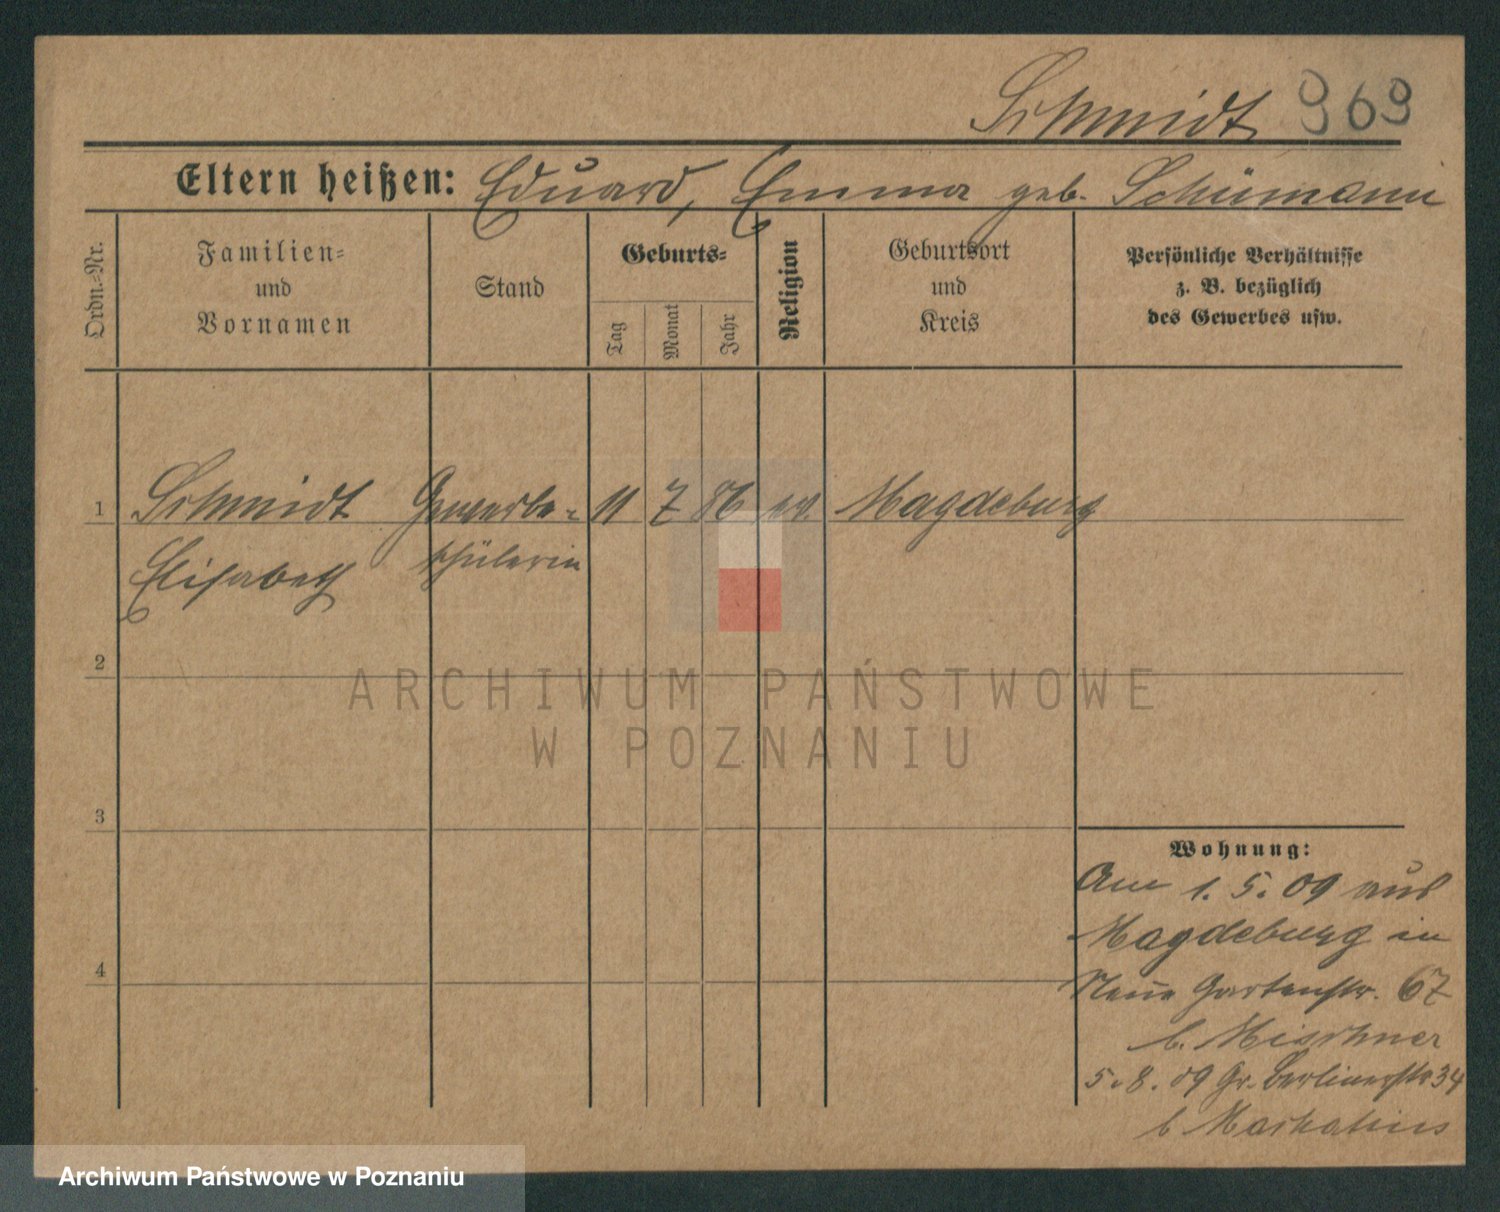 Schmidt 969
Eltern heißen: Eduard, Emma geb. Schümann
Ordn.-Nr.
Familien-
und
Vornamen
Stand
Geburts-
Tag
Monat
Jahr
Religion
Geburtsort
und
Kreis
Persönliche Verhältnisse
z. B. bezüglich
des Gewerbes usw.
1 Schmidt Gewerbe- 11 7 86 ev. Magdeburg
Elisabeth schülerin
2
3
4
Wohnung:
Am 1. 5. 09 aus
Magdeburg in
Neue Gartenstr. 67
b. Mischner
5. 8. 09 Gr. Berlinerstr 34
b
ARCHIWUM PAŃSTWOWE
W POZNANIU
Archiwum Państwowe w Poznaniu